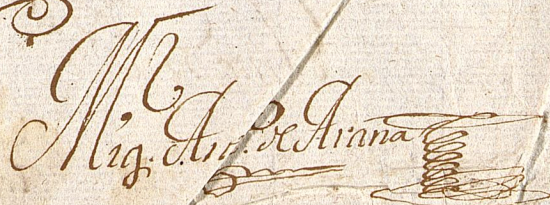 Mig. Anto. de Arana